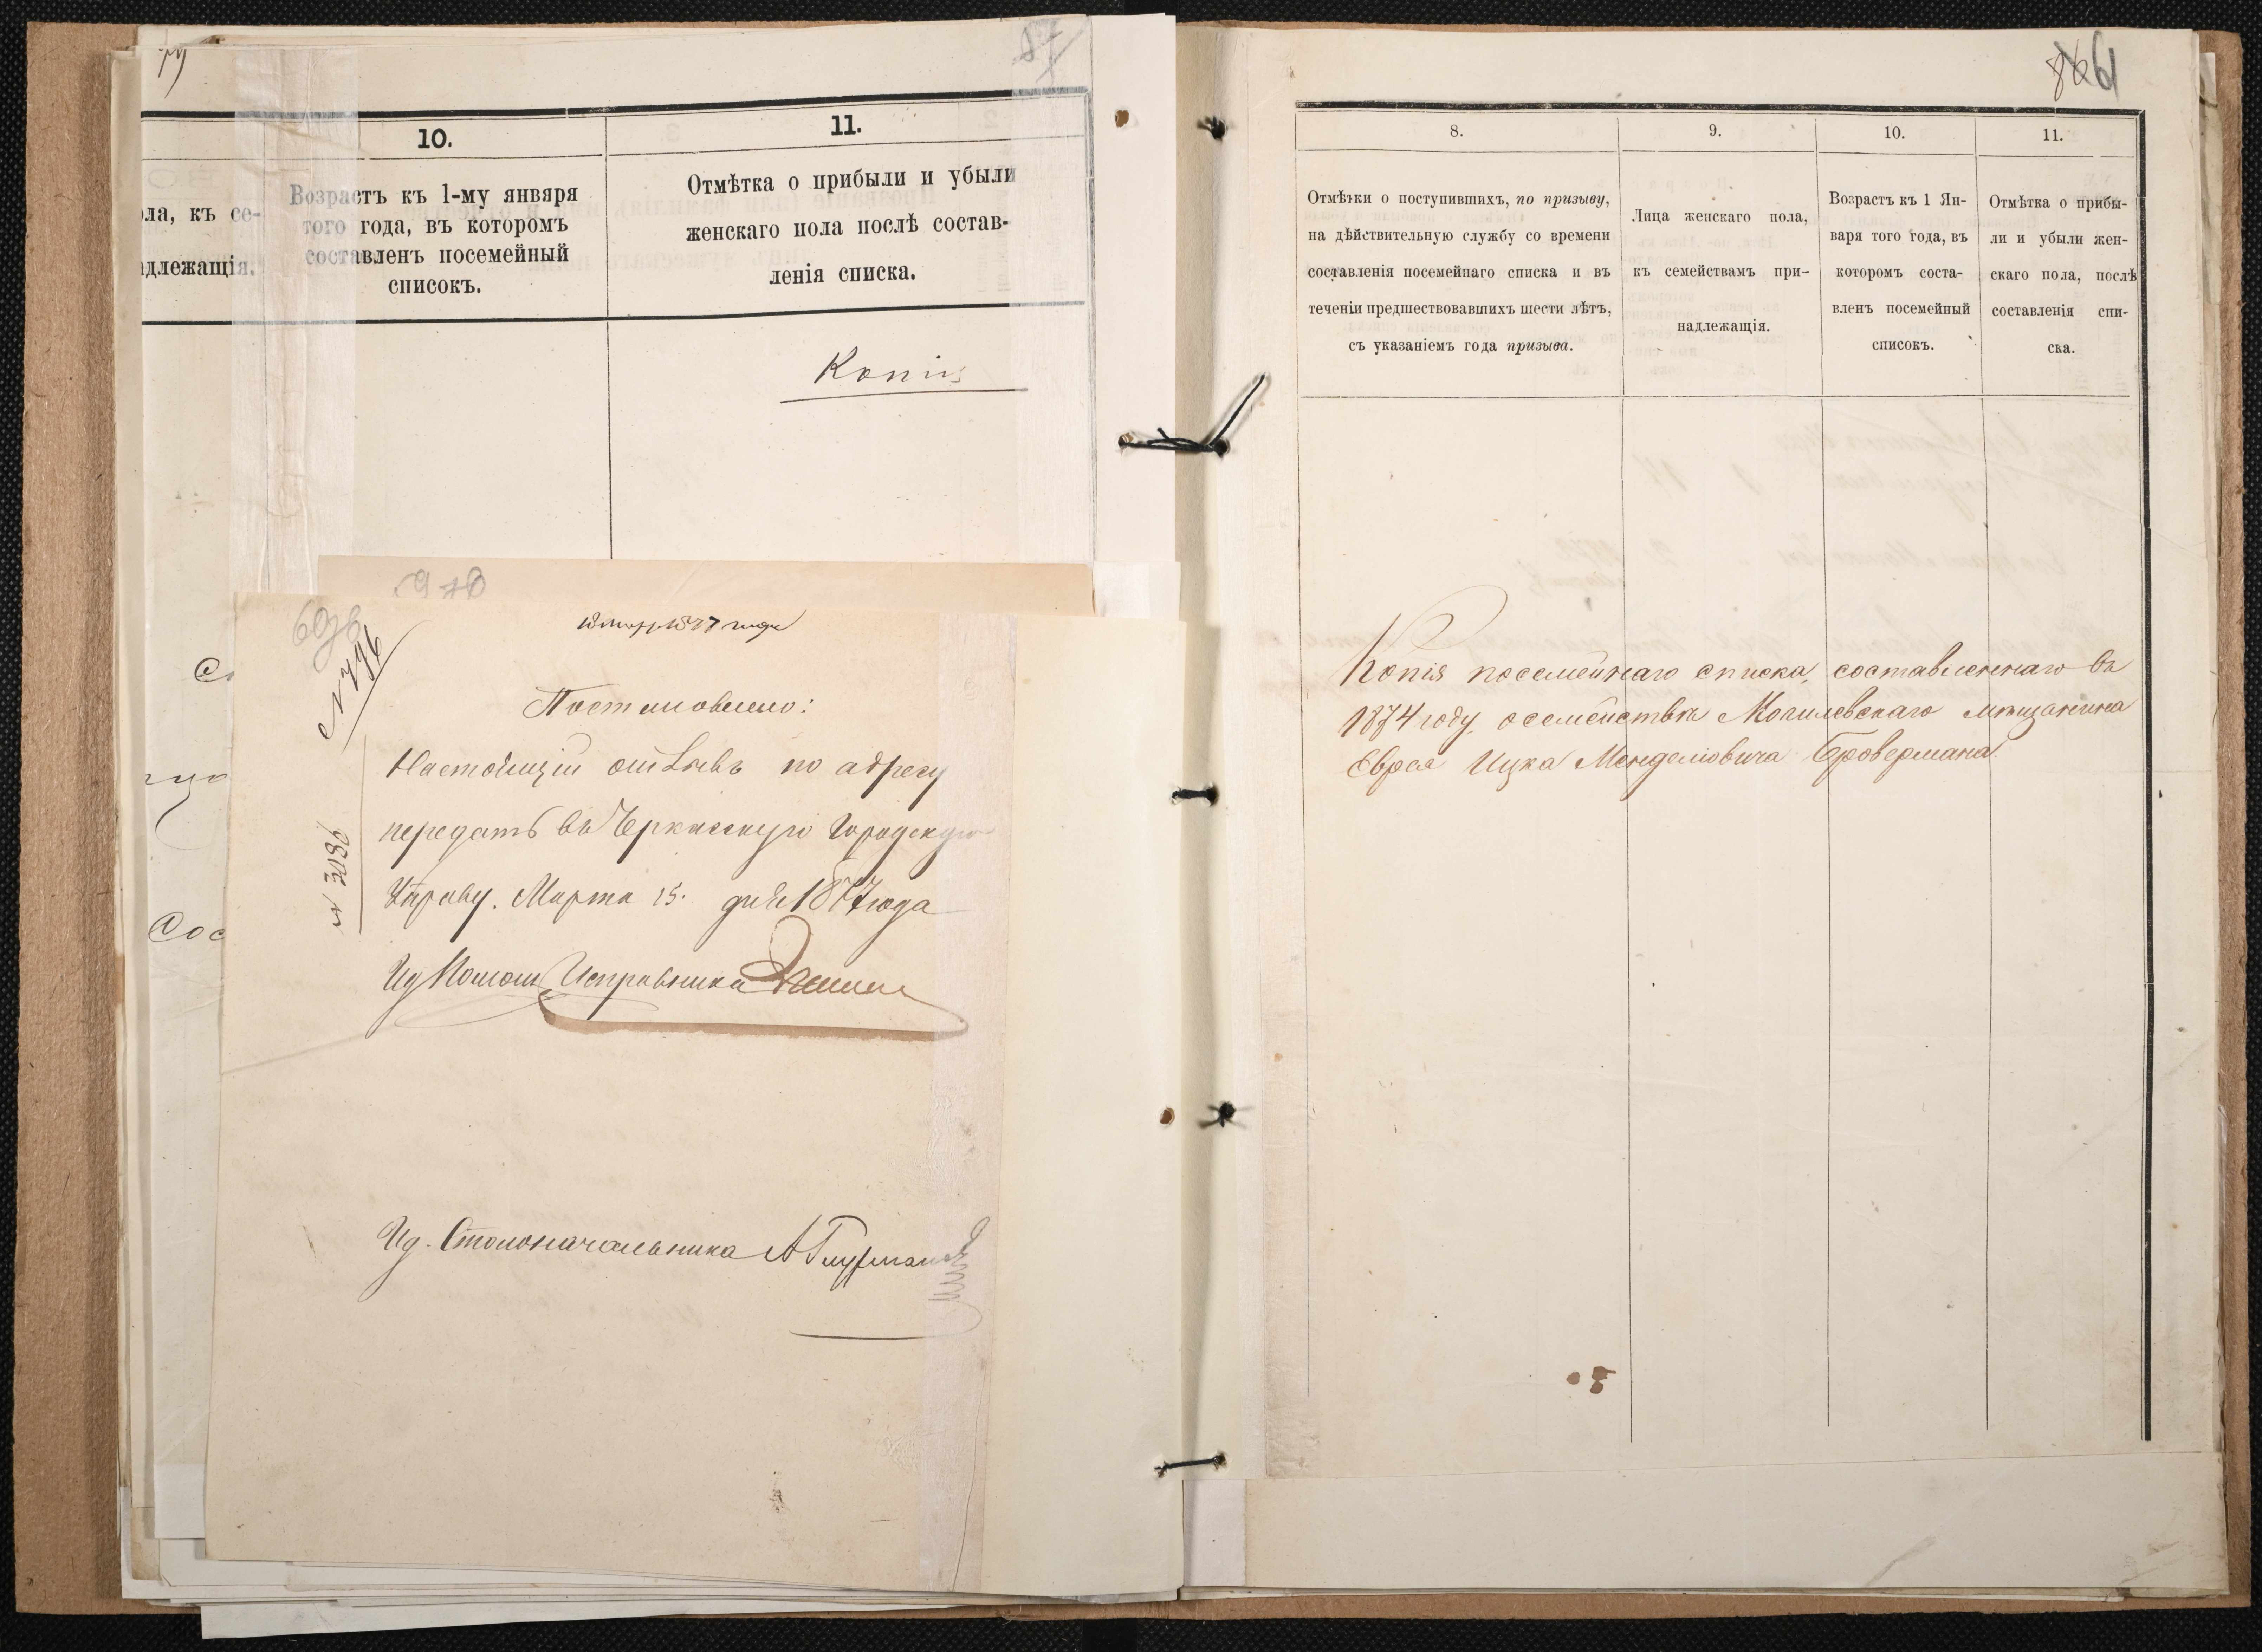 79
87
10.
11.
ола, къ се-
адлежащія.
Возрастъ къ 1-му января
того года, въ которомъ
составленъ посемейный
списокъ.
Отмѣтка о прибыли и убыли
женскаго пола послѣ состав-
ленія списка.
Копія
Сос
1877 года
N 796
N 3086
Постановлено:
Настоящій отзывъ по адресу
передать въ Черкасскую Городскую
Управу. Марта 15. дня 1877 года
Ид Помощ Исправника
Ид. Столоначальника
8.
9.
10.
11.
Отмѣтки о поступившихъ, по призыву,
на дѣйствительную службу со времени
составленія посемейнаго списка и въ
теченіи предшествовавшихъ шести лѣтъ,
съ указаніемъ года призыва.
Лица женскаго пола,
къ семействамъ при-
надлежащія.
Возрастъ къ 1 Ян-
варя того года, въ
которомъ соста-
вленъ посемейный
списокъ.
Отмѣтка о прибы-
ли и убыли жен-
скаго пола, послѣ
составленія спи-
ска.
Копія посемейнаго списка, составленнаго въ
1874 году, о семействѣ Могилевскаго мѣщанина
Еврея Ицка Менделіовича Бровермана.